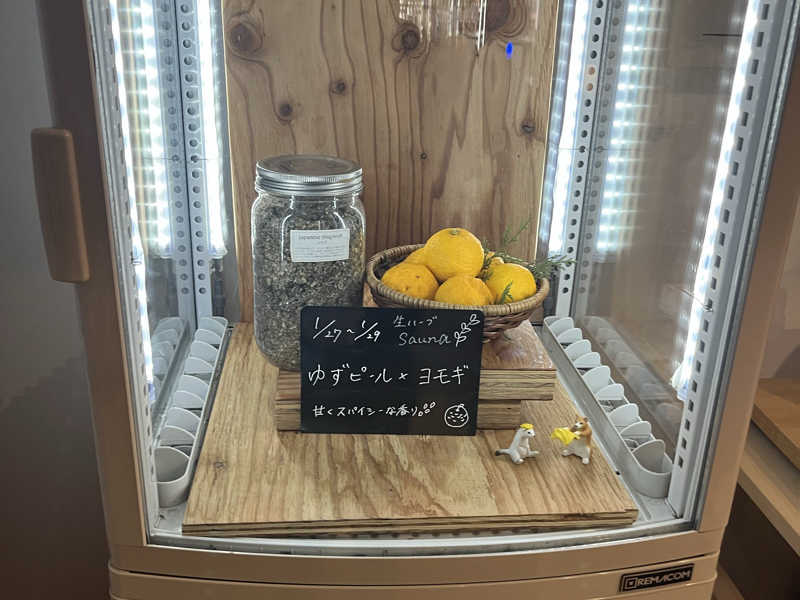 Japanese Mugwort
1/27~1/29 生ハーブ
Sauna
ゆずピール × ヨモギ
甘くスパイシーな香り♪
REMACOM